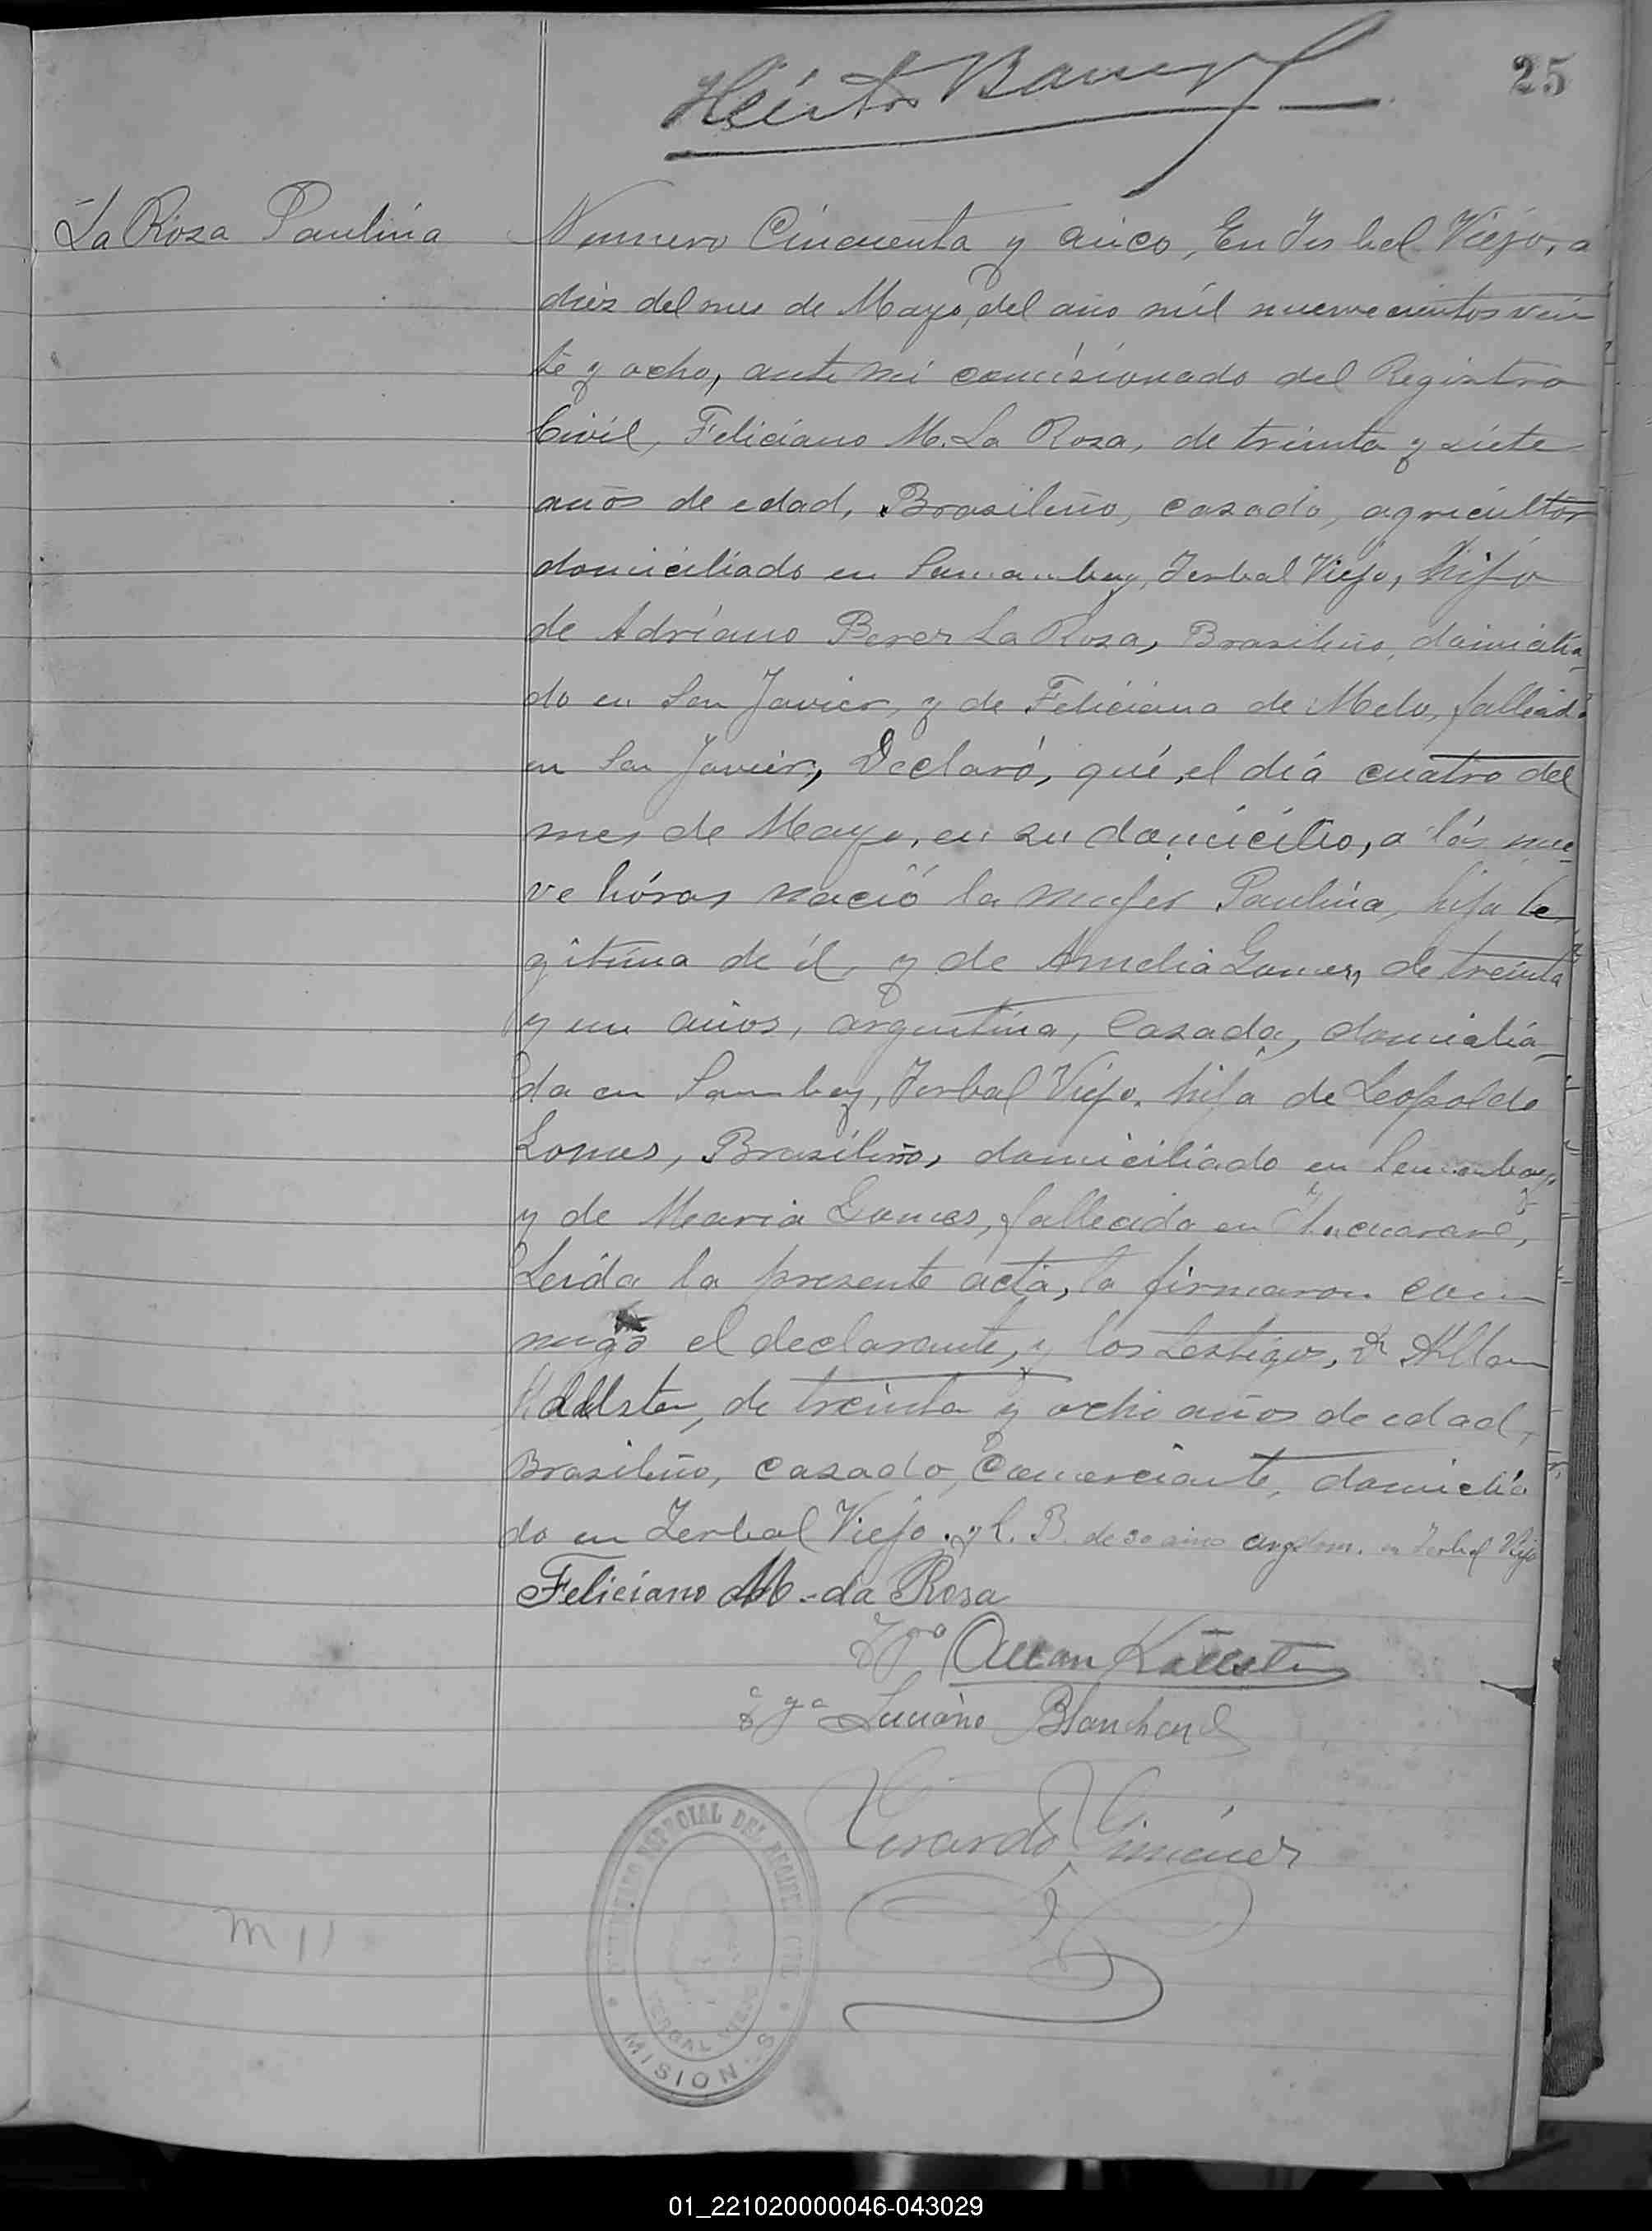 25
Héctor
La Roza Paulina
Numero Cincuenta y cinco, En Yerbal Viejo, a
diez del mes de Mayo, del año mil nuevecientos vein
te y ocho, ante mi comisionado del Registro
Civil, Feliciano M. La Roza, de treinta y siete
años de edad, Brasileño, casado, agricultor
domiciliado en Yerbal Viejo, hijo
de Adriano Perez La Roza, Brasileño, domicilia-
do en San Javier, y de Feliciana de Melo, fallecida
en San Javier, Declaró, qué, el día cuatro del
mes de Mayo, en su domicilio, a las nue-
ve hóras nació la mujer Paulina, hija le
gitima de él, y de Amelia Gomes, de treinta
y un años, argentina, Casada, domicilia-
da en Yerbal Viejo, hija de Leopoldo
Gomes, Brasileño, domiciliado en
y de Maria Gomes, fallecida en
Leida la presente acta, la firmaron con
migo el declarante, y los testigos, Dn Allan
Kallsten, de treinta y ocho años de edad,
Brasileño, casado, Comerciante, domicilia
do en Yerbal Viejo. y L. B. de 30 años arg dom. en Yerbal Viejo
Feliciano M. da Rosa
Tgo Allan Kallsten
Tgo Luciano Blanchard
Gerardo Gimenez
ESPECIAL DEL CIVIL
YERBAL VIEJO
MISIONES
M 11
01_221020000046-043029